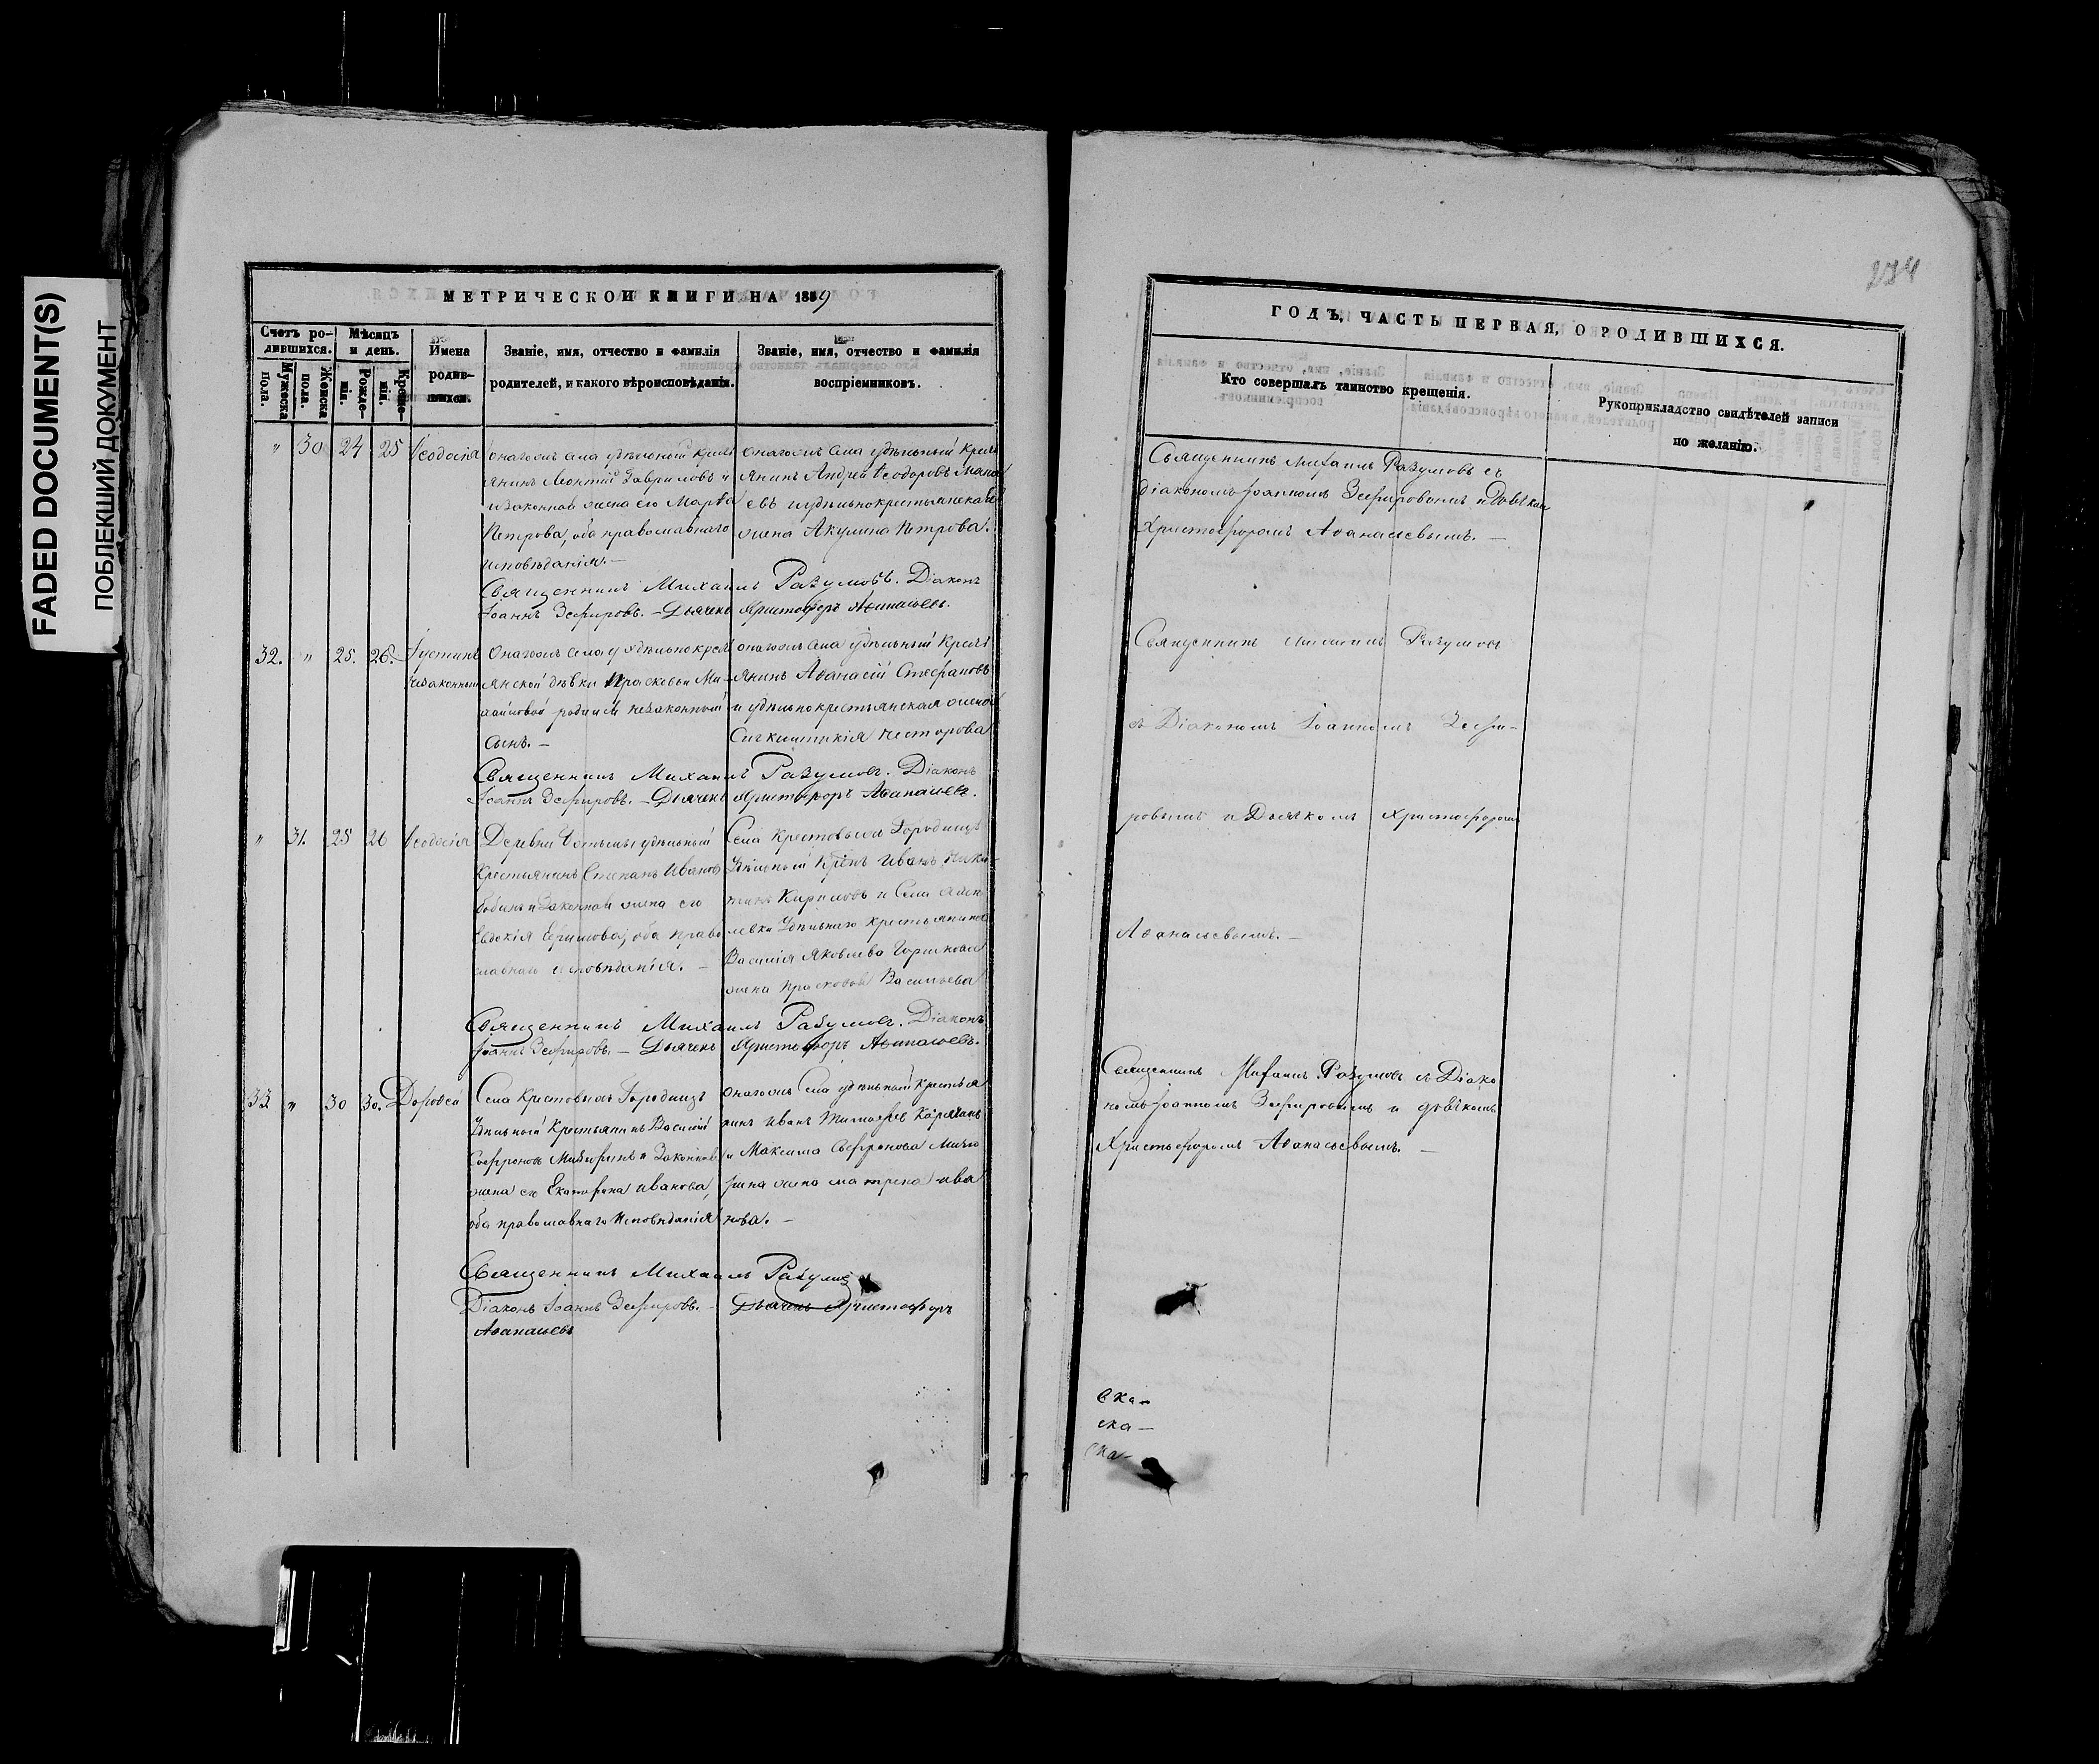 FADED DOCUMENT(S)
ПОБЛЕКШИЙ ДОКУМЕНТ
МЕТРИЧЕСКОЙ КНИГИ НА 1859
Счетъ ро-
дившихся.
Мужеска
пола.
Женска
пола.
Мѣсяцъ
и день.
Рожде-
нія.
Креще-
нія.
Имена
родив-
шихся.
Званіе, имя, отчество и фамилія
родителей, и какого вѣроисповѣданія.
Званіе, имя, отчество и фамилія
воспріемниковъ.
" 30 24 25 Ѳеодосія
онагожъ села удѣльный крест
янинъ Леонтій Гавриловъ и
и законная жена его Марѳа
Петрова, оба православнаго
исповѣданія. —
онагожъ села удѣльный крест
янинъ Андрей Ѳеодоровъ
евъ и удѣльнокрестьянская
жена Акулина Петрова.
Священникъ Михаилъ Разумовъ. Діаконъ
Іоаннъ Зефировъ. — Дьячекъ Христофоръ Аѳанасьевъ.
32. " 25. 26. Іустинъ
незаконный
Онагожъ села удѣльнокрест
янской дѣвки Прасковьи Ми-
хайловой родился незаконный
сынъ. —
онагожъ села удѣльный крест
янинъ Аѳанасій Стефановъ
и удѣльнокрестьянская жена
Несторова
Священникъ Михаилъ Разумовъ. Діаконъ
Іоаннъ Зефировъ. — Дьячекъ Христофоръ Аѳанасьевъ.
" 31. 25 26 Ѳеодосія
Деревни удѣльный
Крестьянинъ Степанъ Ивановъ
и законная жена его
Евдокія Ефимова, оба право
славнаго исповѣданія. —
Села Крестовыхъ Городищъ
Удѣльный Крест. Иванъ Ники-
тинъ Кириловъ и Села
Удѣльнаго Крестьянина
Василія Яковлева Горшкова
жена Прасковья Васильева
Священникъ Михаилъ Разумовъ. Діаконъ
Іоаннъ Зефировъ. — Дьячекъ Христофоръ Аѳанасьевъ.
33 " 30 30. Дороѳей
Села Крестовыхъ Городищъ
Удѣльный Крестьянинъ Василій
Софроновъ и Законная
жена его Екатерина Иванова,
оба православнаго Исповѣданія
онагожъ Села удѣльный крестья
нинъ Иванъ Тимофѣевъ
и Максима Софронова
жена Матрена Ива
нова. —
Священникъ Михаилъ Разумовъ
Діаконъ Іоаннъ Зефировъ. — Дьячекъ Христофоръ
Аѳанасьевъ
ГОДЪ, ЧАСТЬ ПЕРВАЯ, О РОДИВШИХСЯ.
Кто совершалъ таинство крещенія.
Рукоприкладство свидѣтелей записи
по желанію.
Священникъ Михаилъ Разумовъ съ
Діакономъ Іоанномъ Зефировымъ и Дьячкомъ
Христофоромъ Аѳанасьевымъ. —
Священникъ Михаилъ Разумовъ
съ Діакономъ Іоанномъ Зефи-
ровымъ и Дьячкомъ Христофоромъ
Аѳанасьевымъ. —
Священникъ Михаилъ Разумовъ съ Діако
номъ Іоанномъ Зефировымъ и дьячкомъ
Христофоромъ Аѳанасьевымъ. —
ска —
ска —
ска —